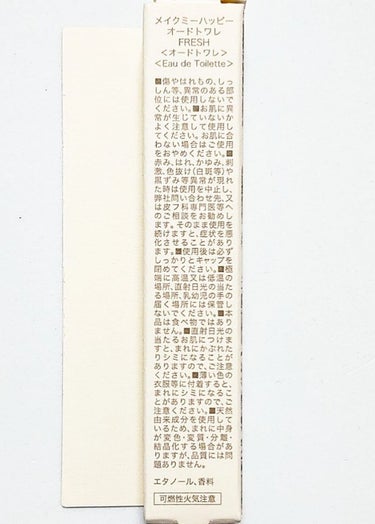 メイクミーハッピー
オードトワレ
FRESH
<オードトワレ>
<Eau de Toilette>
■傷やはれもの、しっ
しん等、異常のある部
位には使用しないで
ください。■お肌に異
常が生じていないか
よく注意して使用し
てください。お肌に合
わない場合はご使用
をおやめください。■
赤み、はれ、かゆみ、刺
激、色抜け(白斑等)や
黒ずみ等異常が現れ
た時は使用を中止し、
弊社問い合わせ先、又
は皮フ科専門医等へ
のご相談をお勧めし
ます。そのまま使用を
続けますと、症状を悪
化させることがあり
ます。■使用後は必ず
しっかりとキャップを
閉めてください。■極
端に高温又は低温の
場所、直射日光の当た
る場所、乳幼児の手の
届く場所には保管し
ないでください。■本
品は食べ物ではあり
ません。■直射日光の
当たるお肌につけま
すと、まれにかぶれた
りシミになることが
ありますので、ご注意
ください。■薄い色の
衣服等に付着すると、
まれにシミになるこ
とがありますので、ご
注意ください。■天然
由来成分を使用して
いるため、まれに中身
が変色・変質・分離・
結晶化する場合があ
りますが、品質には問
題ありません。
エタノール、香料
可燃性火気注意